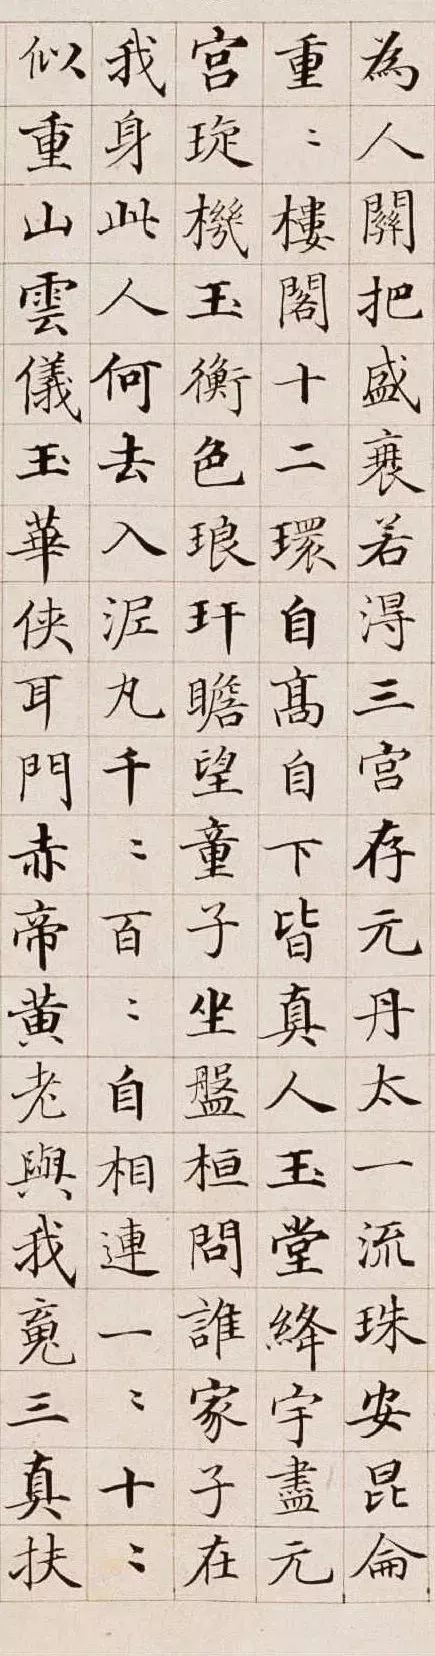 為人關把盛衰若淂三宫存元丹太一流珠安昆侖
重〻樓閣十二環自髙自下皆真人玉堂絳宇盡元
宫琁機玉衡色琅玕瞻望童子坐盤桓問誰家子在
我身此人何去入泥丸千〻百〻自相連一〻十〻
似重山雲儀玉華俠耳門赤帝黄老與我䰟三真扶